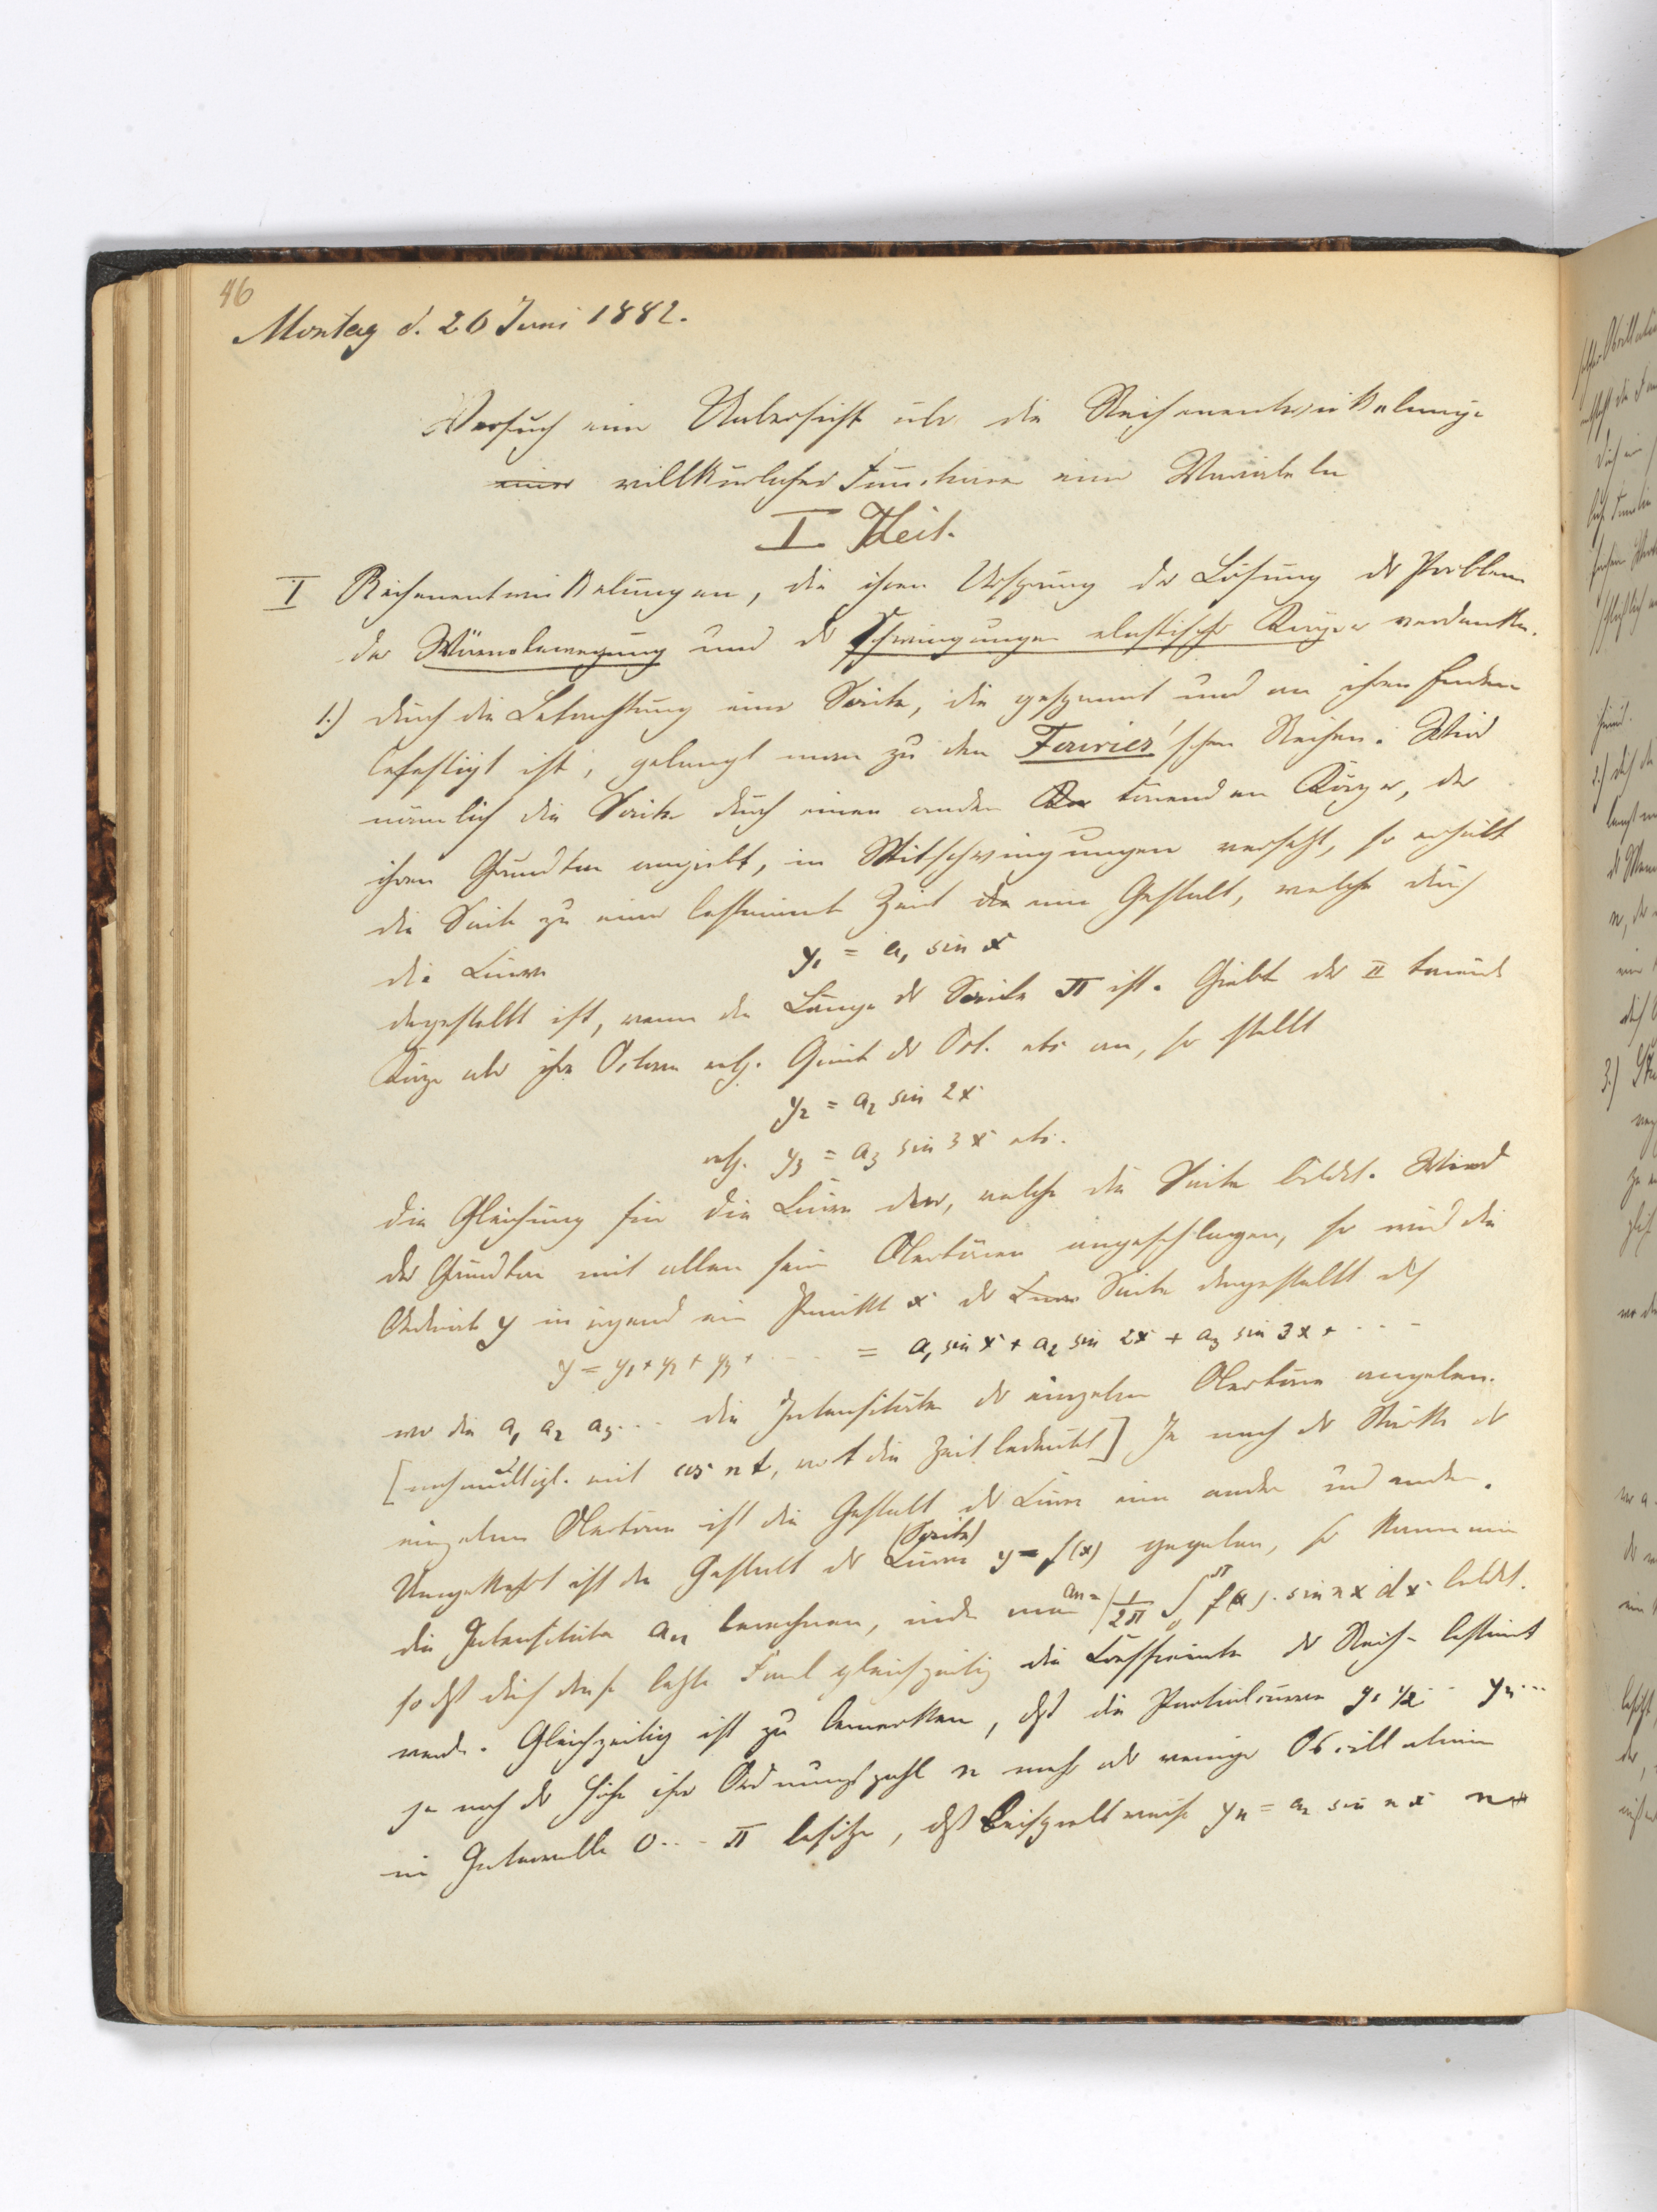 46
Montag d. 26 Juni 1882.
Versuch einer Uebersicht über die Reihenentwickelungen
einer willkürlichen Functionen einer Variabeln
I. Theil.
I Reihenentwickelungen, die ihren Ursprung der Lösung der Probleme
der Wärmebewegung und der Schwingungen elastischer Körper verdanken.
1.) Durch die Betrachtung einer Saite, die gespannt und an ihren Enden
befestigt ist, gelangt man zu den Fourier'schen Reihen. Wird
nämlich die Saite durch einen andern tönenden Körper, der
ihren Grundton angiebt, in Mitschwingungen versetzt, so erhält
die Saite zu einer bestimmten Zeit eine Gestalt, welche durch
die Curve y₁ = a₁ sin x
dargestellt ist, wenn die Länge der Saite π ist. Giebt der II tönende
Körper aber ihre Octave resp. Quint der Oct. etc an, so stellt
y₂ = a₂ sin 2x
resp. y₃ = a₃ sin 3x etc.
die Gleichung für die Curve dar, welche die Saite bildet. Wird
der Grundton mit allen seinen Obertönen angeschlagen, so wird die
Ordinate y in irgend ein Punkt x der Curve Saite dargestellt durch
y = y₁ + y₂ + y₃ + ... = a₁ sin x + a₂ sin 2x + a₃ sin 3x + ....
wo die a₁ a₂ a₃... die Intensitäten der einzelnen Obertöne angeben.
[noch multipl. mit cos nt, wo t die Zeit bedeutet] Je nach der Stärke der
einzelnen Obertöne ist die Gestalt der Curve eine andere und andere.
Umgekehrt ist die Gestalt der Curve (Saite) y = f(x) gegeben, so kann man
die Intensitäten aₙ berechnen, indem man aₙ = 1/2π ∫₀^π f(x). sin nx dx bildet.
so dß durch diese letzte Formel gleichzeitig die Coefficienten der Reihe bestimmt
werden. Gleichzeitig ist zu bemerken, dß die Partialcurven y₁ y₂... yₙ...
je nach der Höhe ihrer Ordnungszahl n mehr oder weniger Oscillationen
im Intervalle 0... π besitzen, dß beispielsweise yₙ = aₙ sin nx n